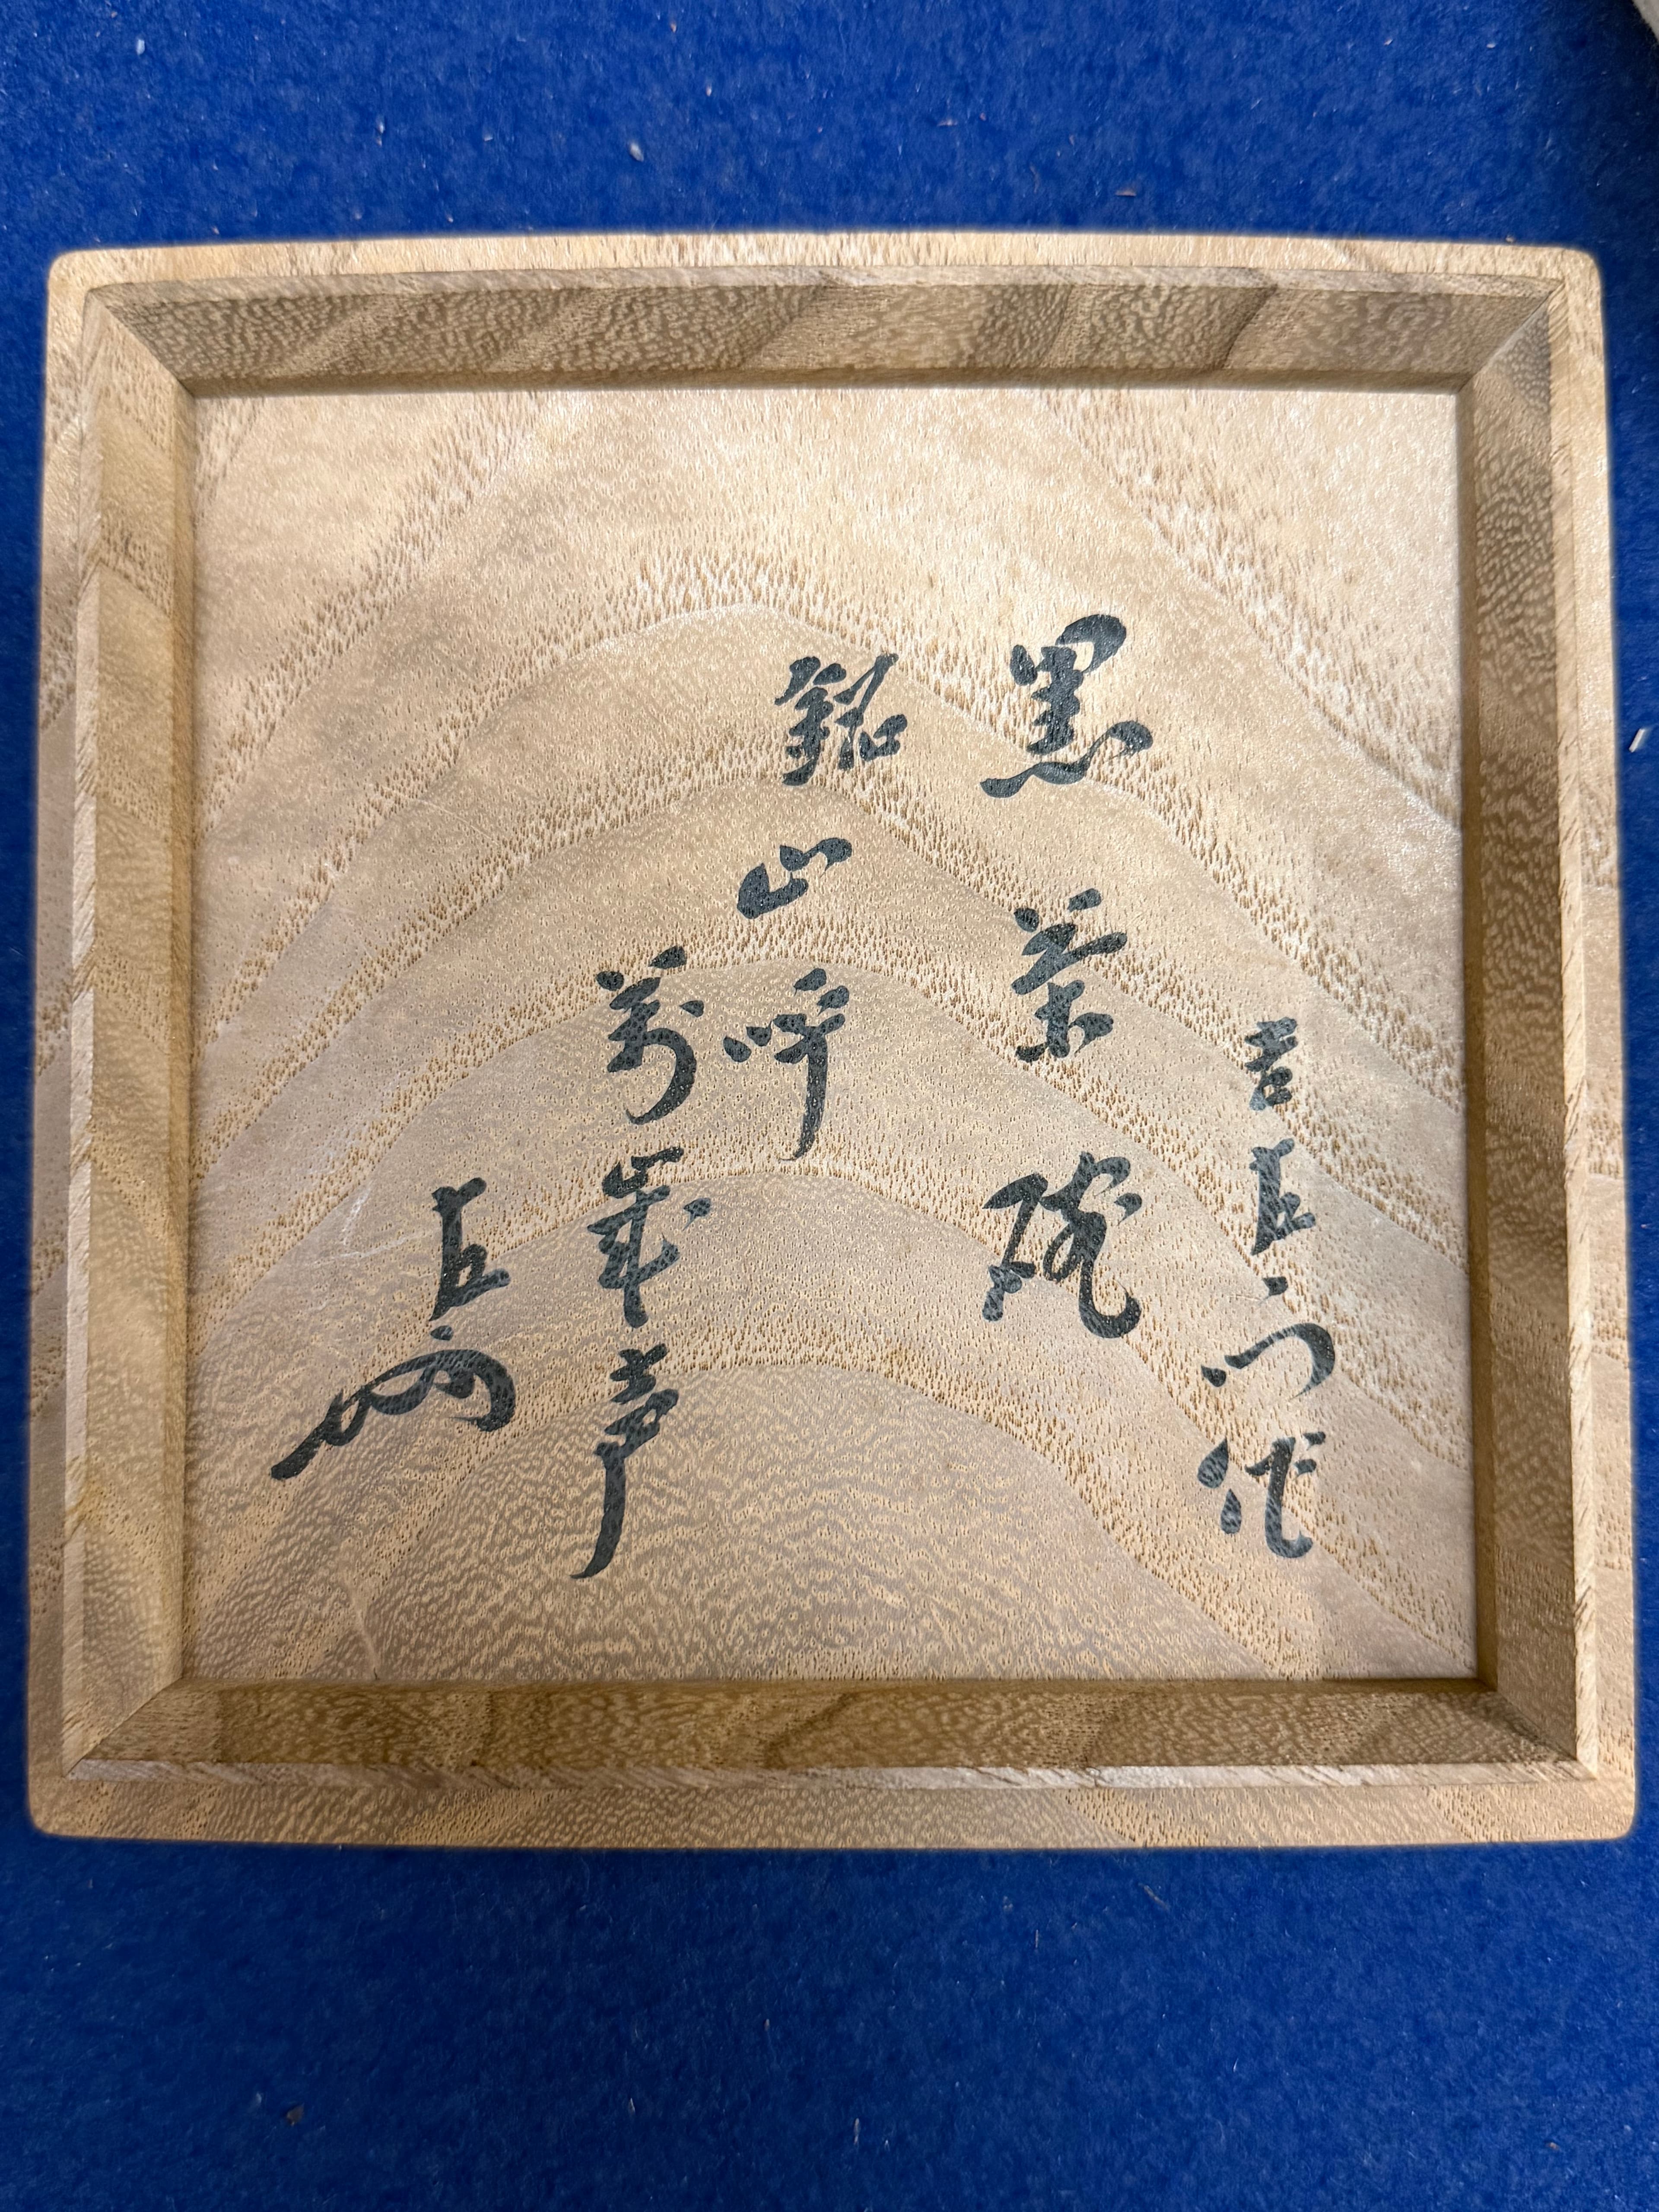 吉左衛門作
黒茶碗
銘山呼
萬歳声
左